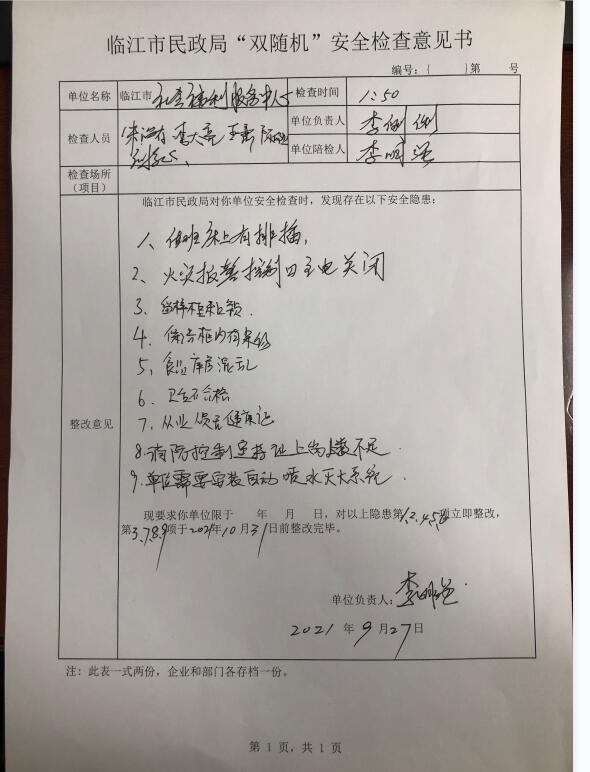 临江市民政局“双随机”安全检查意见书
编号：（ ）第 号
单位名称 临江市社会福利服务中心 检查时间 1:50
检查人员 李大亮 单位负责人 李
单位陪检人 李
检查场所（项目）
临江市民政局对你单位安全检查时，发现存在以下安全隐患：
1、值班床上有排插，
2、火灾报警控制四主电关闭
3、留样柜未上锁
4、保洁柜内有杂物
5、食品库房混乱
6、卫生不合格
整改意见
7、从业人员无健康证
8.消防控制室持证上岗人数不足.
9.单位需要安装自动喷水灭火系统.
现要求你单位限于 年 月 日，对以上隐患第1.2.4.5.6项立即整改，
第3.7.8.9项于2021年10月31日前整改完毕。
单位负责人：李
2021年9月27日
注：此表一式两份，企业和部门各存档一份。
第 1 页，共 1 页